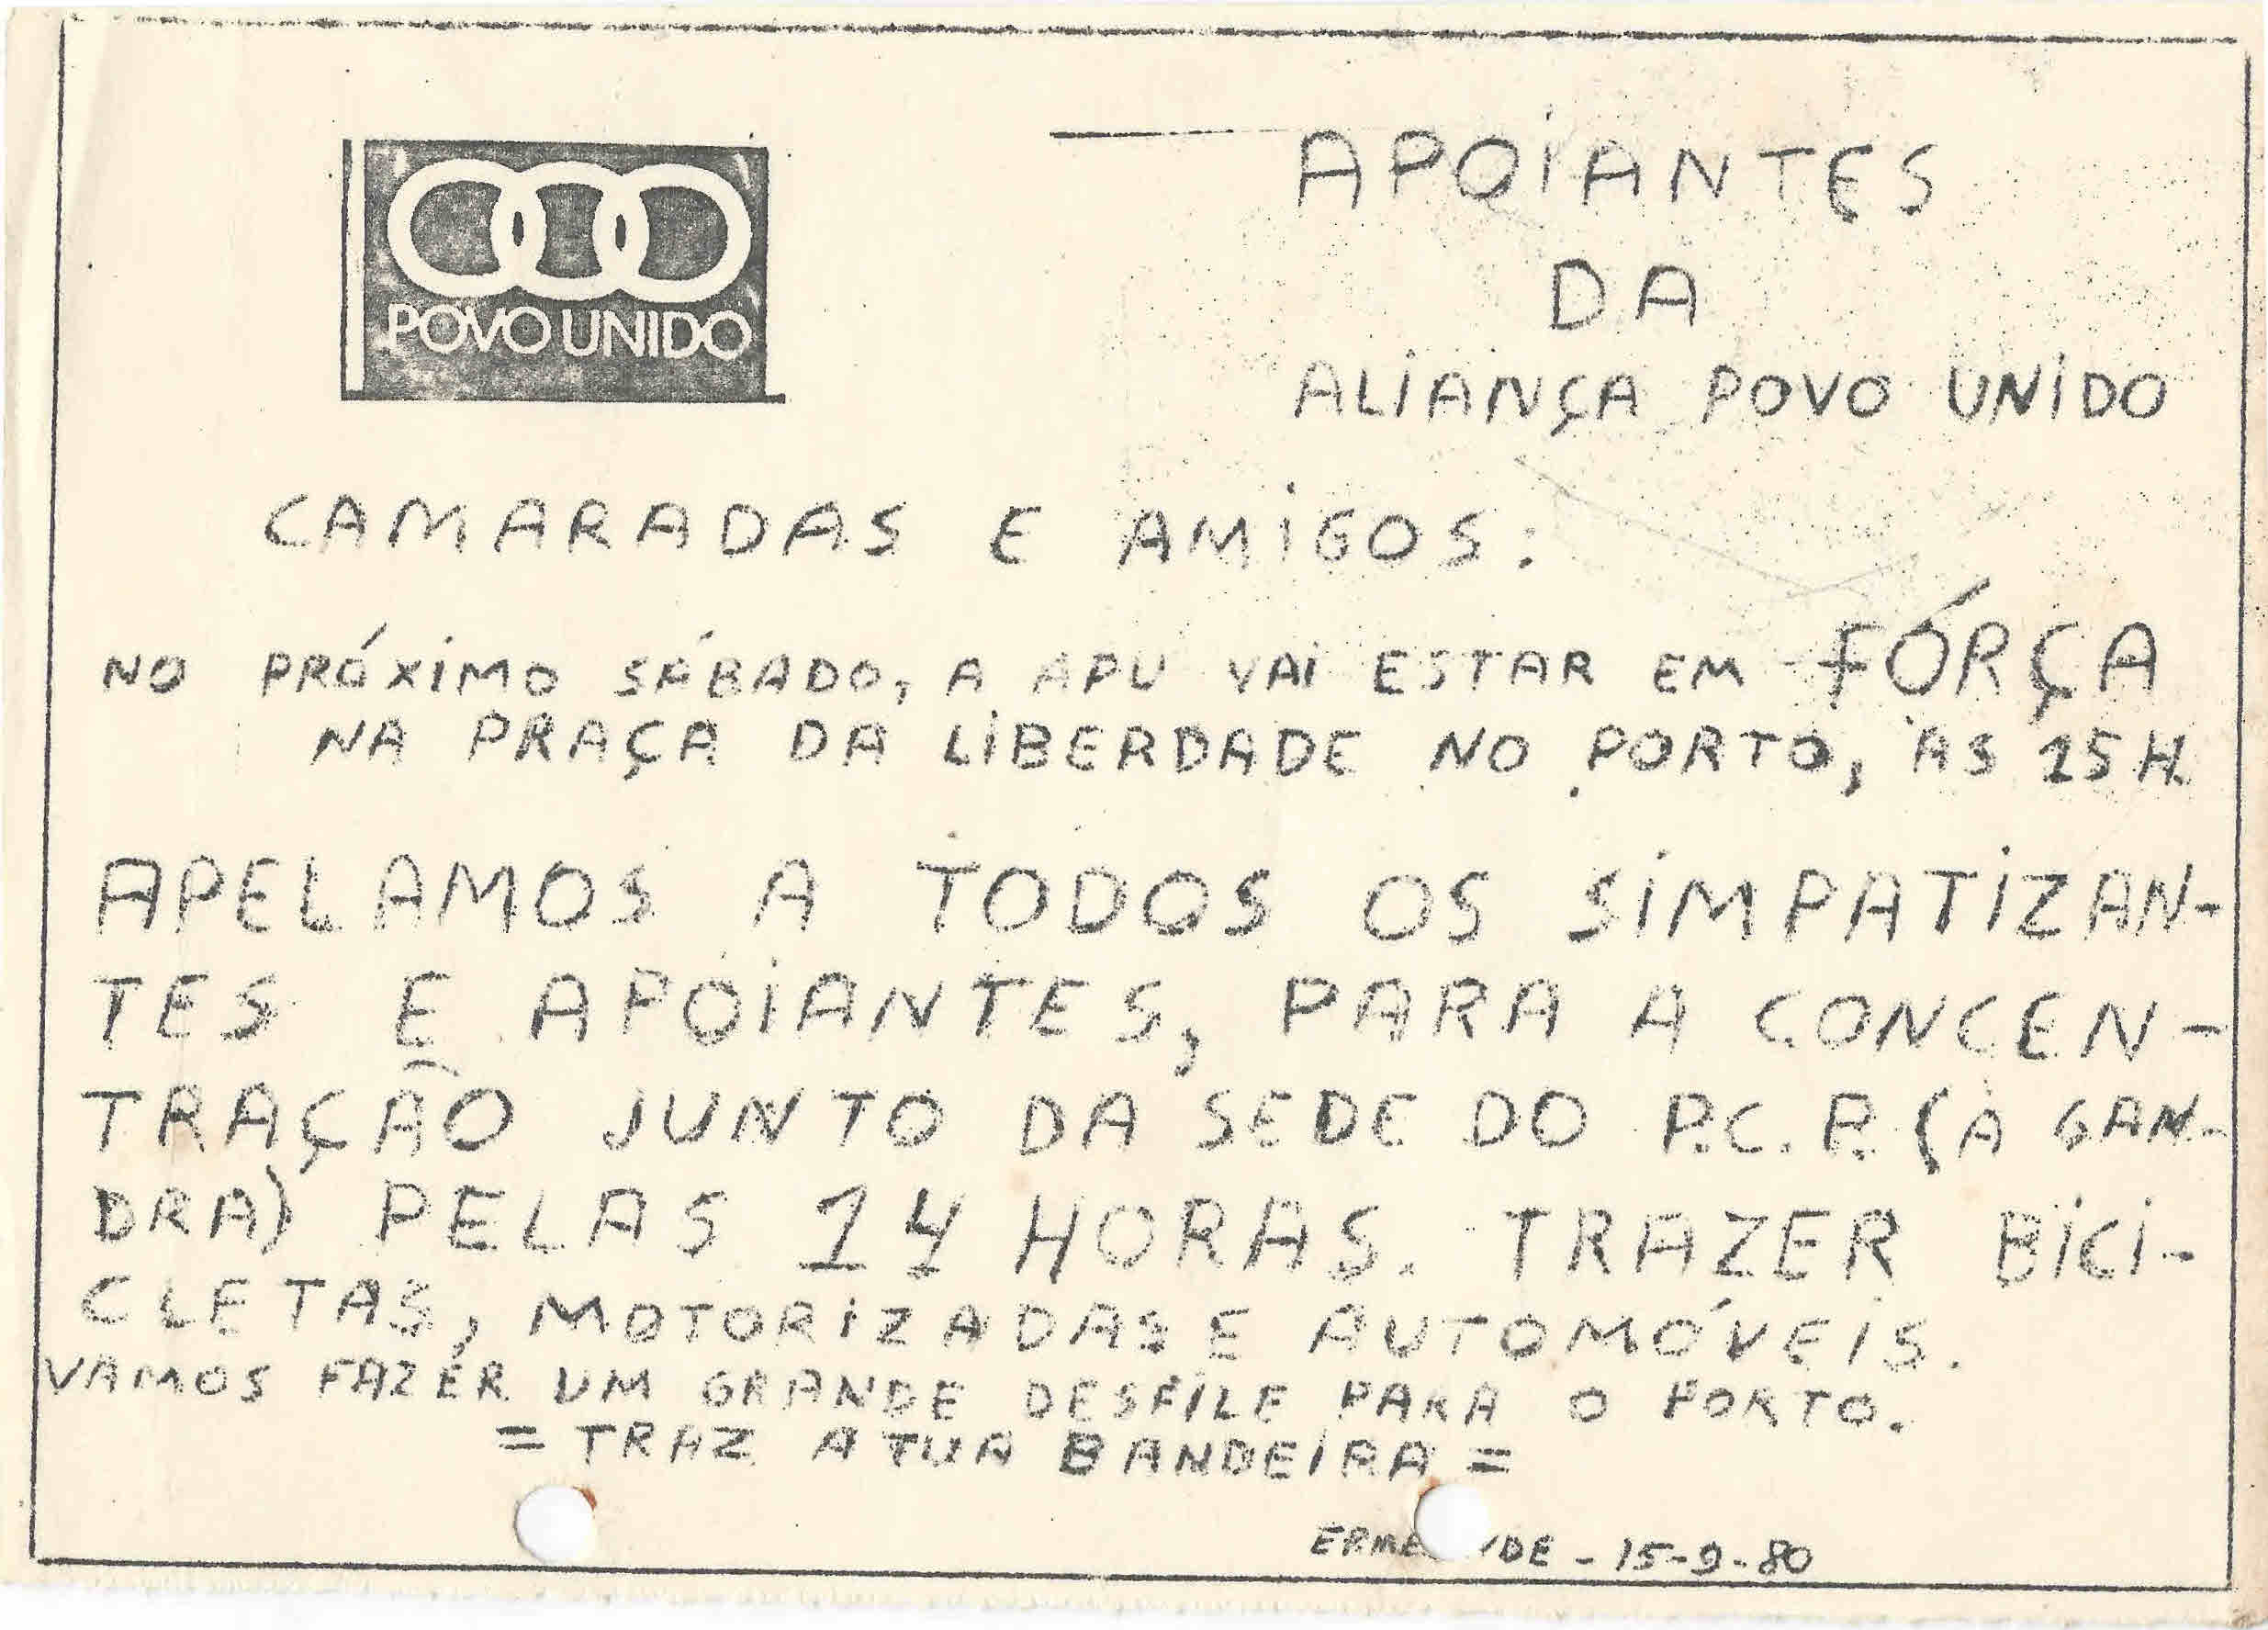 POVO UNIDO
APOIANTES
DA
ALIANÇA POVO UNIDO
CAMARADAS E AMIGOS:
NO PRÓXIMO SÁBADO, A APU VAI ESTAR EM FÓRÇA
NA PRAÇA DA LIBERDADE NO PORTO, ÀS 15 H.
APELAMOS A TODOS OS SIMPATIZAN-
TES E APOIANTES, PARA A CONCEN-
TRAÇÃO JUNTO DA SEDE DO P.C.P. (À GAN-
DRA) PELAS 14 HORAS. TRAZER BICI-
CLETAS, MOTORIZADAS E AUTOMÓVEIS.
VAMOS FAZER UM GRANDE DESFILE PARA O PORTO.
= TRAZ A TUA BANDEIRA =
- 15-9-80